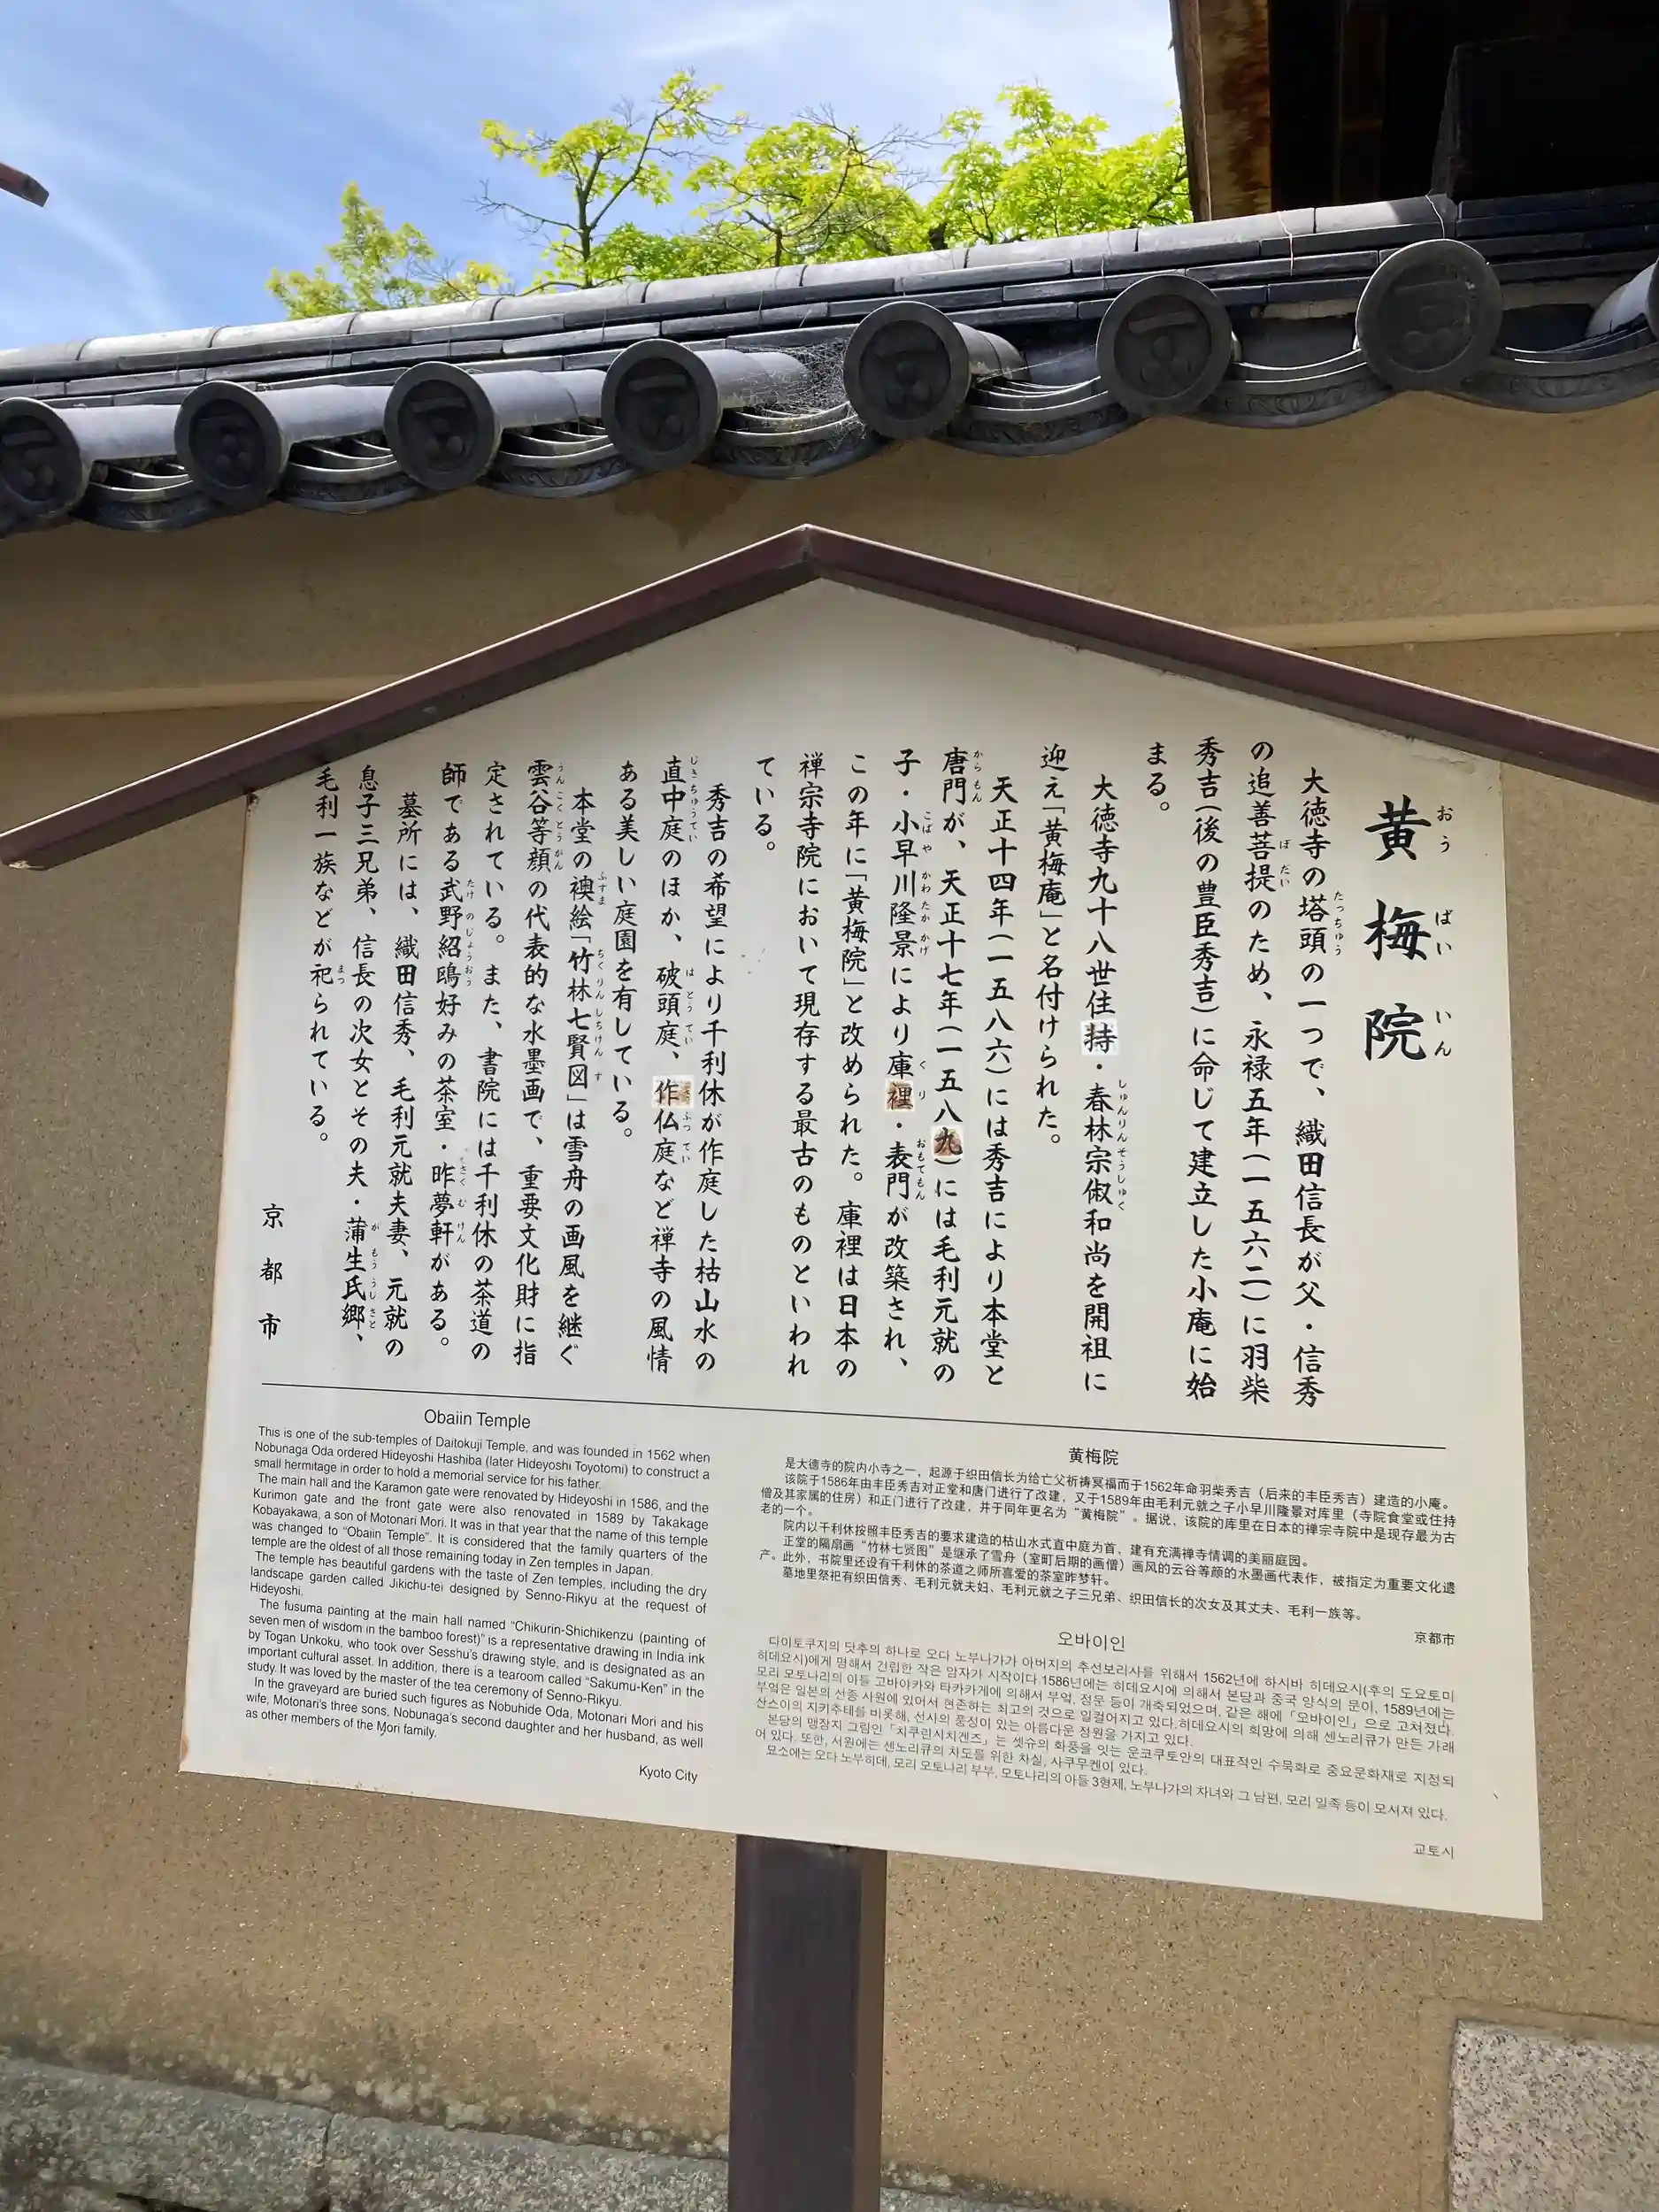 黄梅院
おうばいいん
大徳寺の塔頭の一つで、織田信長が父・信秀
の追善菩提のため、永禄五年(一五六二)に羽柴
秀吉(後の豊臣秀吉)に命じて建立した小庵に始
まる。
大徳寺九十八世住持・春林宗俶和尚を開祖に
迎え「黄梅庵」と名付けられた。
天正十四年(一五八六)には秀吉により本堂と
唐門が、天正十七年(一五八九)には毛利元就の
子・小早川隆景により庫裡・表門が改築され、
この年に「黄梅院」と改められた。庫裡は日本の
禅宗寺院において現存する最古のものといわれ
ている。
秀吉の希望により千利休が作庭した枯山水の
直中庭のほか、破頭庭、作仏庭など禅寺の風情
ある美しい庭園を有している。
本堂の襖絵「竹林七賢図」は雪舟の画風を継ぐ
雲谷等顔の代表的な水墨画で、重要文化財に指
定されている。また、書院には千利休の茶道の
師である武野紹鴎好みの茶室・昨夢軒がある。
墓所には、織田信秀、毛利元就夫妻、元就の
息子三兄弟、信長の次女とその夫・蒲生氏郷、
毛利一族などが祀られている。
京都市
Obaiin Temple
This is one of the sub-temples of Daitokuji Temple, and was founded in 1562 when
Nobunaga Oda ordered Hideyoshi Hashiba (later Hideyoshi Toyotomi) to construct a
small hermitage in order to hold a memorial service for his father.
The main hall and the Karamon gate were renovated by Hideyoshi in 1586, and the
Kurimon gate and the front gate were also renovated in 1589 by Takakage
Kobayakawa, a son of Motonari Mori. It was in that year that the name of this temple
was changed to "Obaiin Temple". It is considered that the family quarters of the
temple are the oldest of all those remaining today in Zen temples in Japan.
The temple hes beautiful gardens with the taste of Zen temples, including the dry
landscape garden called Jikichu-tei designed by Senno-Rikyu at the request of
Hideyoshi.
The fusuma painting at the main hall named "Chikurin-Shichikenzu (painting of
seven men of wisdom in the bamboo forest)" is a representative drawing in India ink
by Togan Unkoku, who took over Sesshu's drawing style, and is designated as an
important cultural asset. In addition, there is a tearoom called "Sakumu-Ken" in the
study. It was loved by the master of the tea ceremony of Senno-Rikyu.
In the graveyard are buried such figures as Nobuhide Oda, Motonari Mori and his
wife, Motonari's three sons, Nobunaga's second daughter and her husband, as well
as other members of the Mori family.
Kyoto City
黄梅院
是大德寺的院内小寺之一，起源于织田信长为给亡父祈祷冥福而于1562年命羽柴秀吉（后来的丰臣秀吉）建造的小庵。
该院于1586年由丰臣秀吉对正堂和唐门进行了改建，又于1589年由毛利元就之子小早川隆景对库里（寺院食堂或住持
僧及其家属的住房）和正门进行了改建，并于同年更名为“黄梅院”。据说，该院的库里在日本的禅宗寺院中是现存最为古
老的一个。
院内以千利休按照丰臣秀吉的要求建造的枯山水式直中庭为首，建有充满禅寺情调的美丽庭园。
正堂的隔扇画“竹林七贤图”是继承了雪舟（室町后期的画僧）画风的云谷等颜的水墨画代表作，被指定为重要文化遗
产。此外，书院里还设有千利休的茶道之师所喜爱的茶室昨梦轩。
墓地里祭祀有织田信秀、毛利元就夫妇、毛利元就之子三兄弟、织田信长的次女及其丈夫、毛利一族等。
京都市
오바이인
다이토쿠지의 탓추의 하나로 오다 노부나가가 아버지의 추선보리사를 위해서 1562년에 하시바 히데요시(후의 도요토미
히데요시)에게 명해서 건립한 작은 암자가 시작이다. 1586년에는 히데요시에 의해서 본당과 중국 양식의 문이, 1589년에는
모리 모토나리의 아들 고바야카와 타카카게에 의해서 부엌, 정문 등이 개축되었으며, 같은 해에「오바이인」으로 고쳐졌다.
부엌은 일본의 선종 사원에 있어서 현존하는 최고의 것으로 일컬어지고 있다.히데요시의 희망에 의해 센노리큐가 만든 가래
산스이의 지키추테를 비롯해, 선사의 풍정이 있는 아름다운 정원을 가지고 있다.
본당의 맹장지 그림인「치쿠린시치켄즈」는 셋슈의 화풍을 잇는 운코쿠토안의 대표적인 수묵화로 중요문화재로 지정되
어 있다. 또한, 서원에는 센노리큐의 차도를 위한 차실, 사쿠무켄이 있다.
묘소에는 오다 노부히데, 모리 모토나리 부부, 모토나리의 아들 3형제, 노부나가의 차녀와 그 남편, 모리 일족 등이 모셔져 있다.
교토시